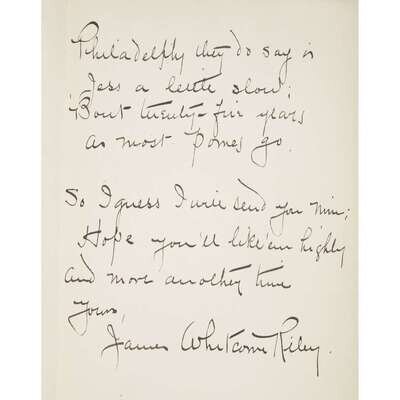 Philadelphy they do say is
Jess a leetle slow;
'Bout twenty-five years
as most pomes go.
So I guess I will send you mine;
Hope you'll like 'em highly
and more another time
Yours,
James Whitcomb Riley.